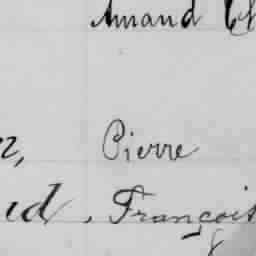 Amand
Pierre
François